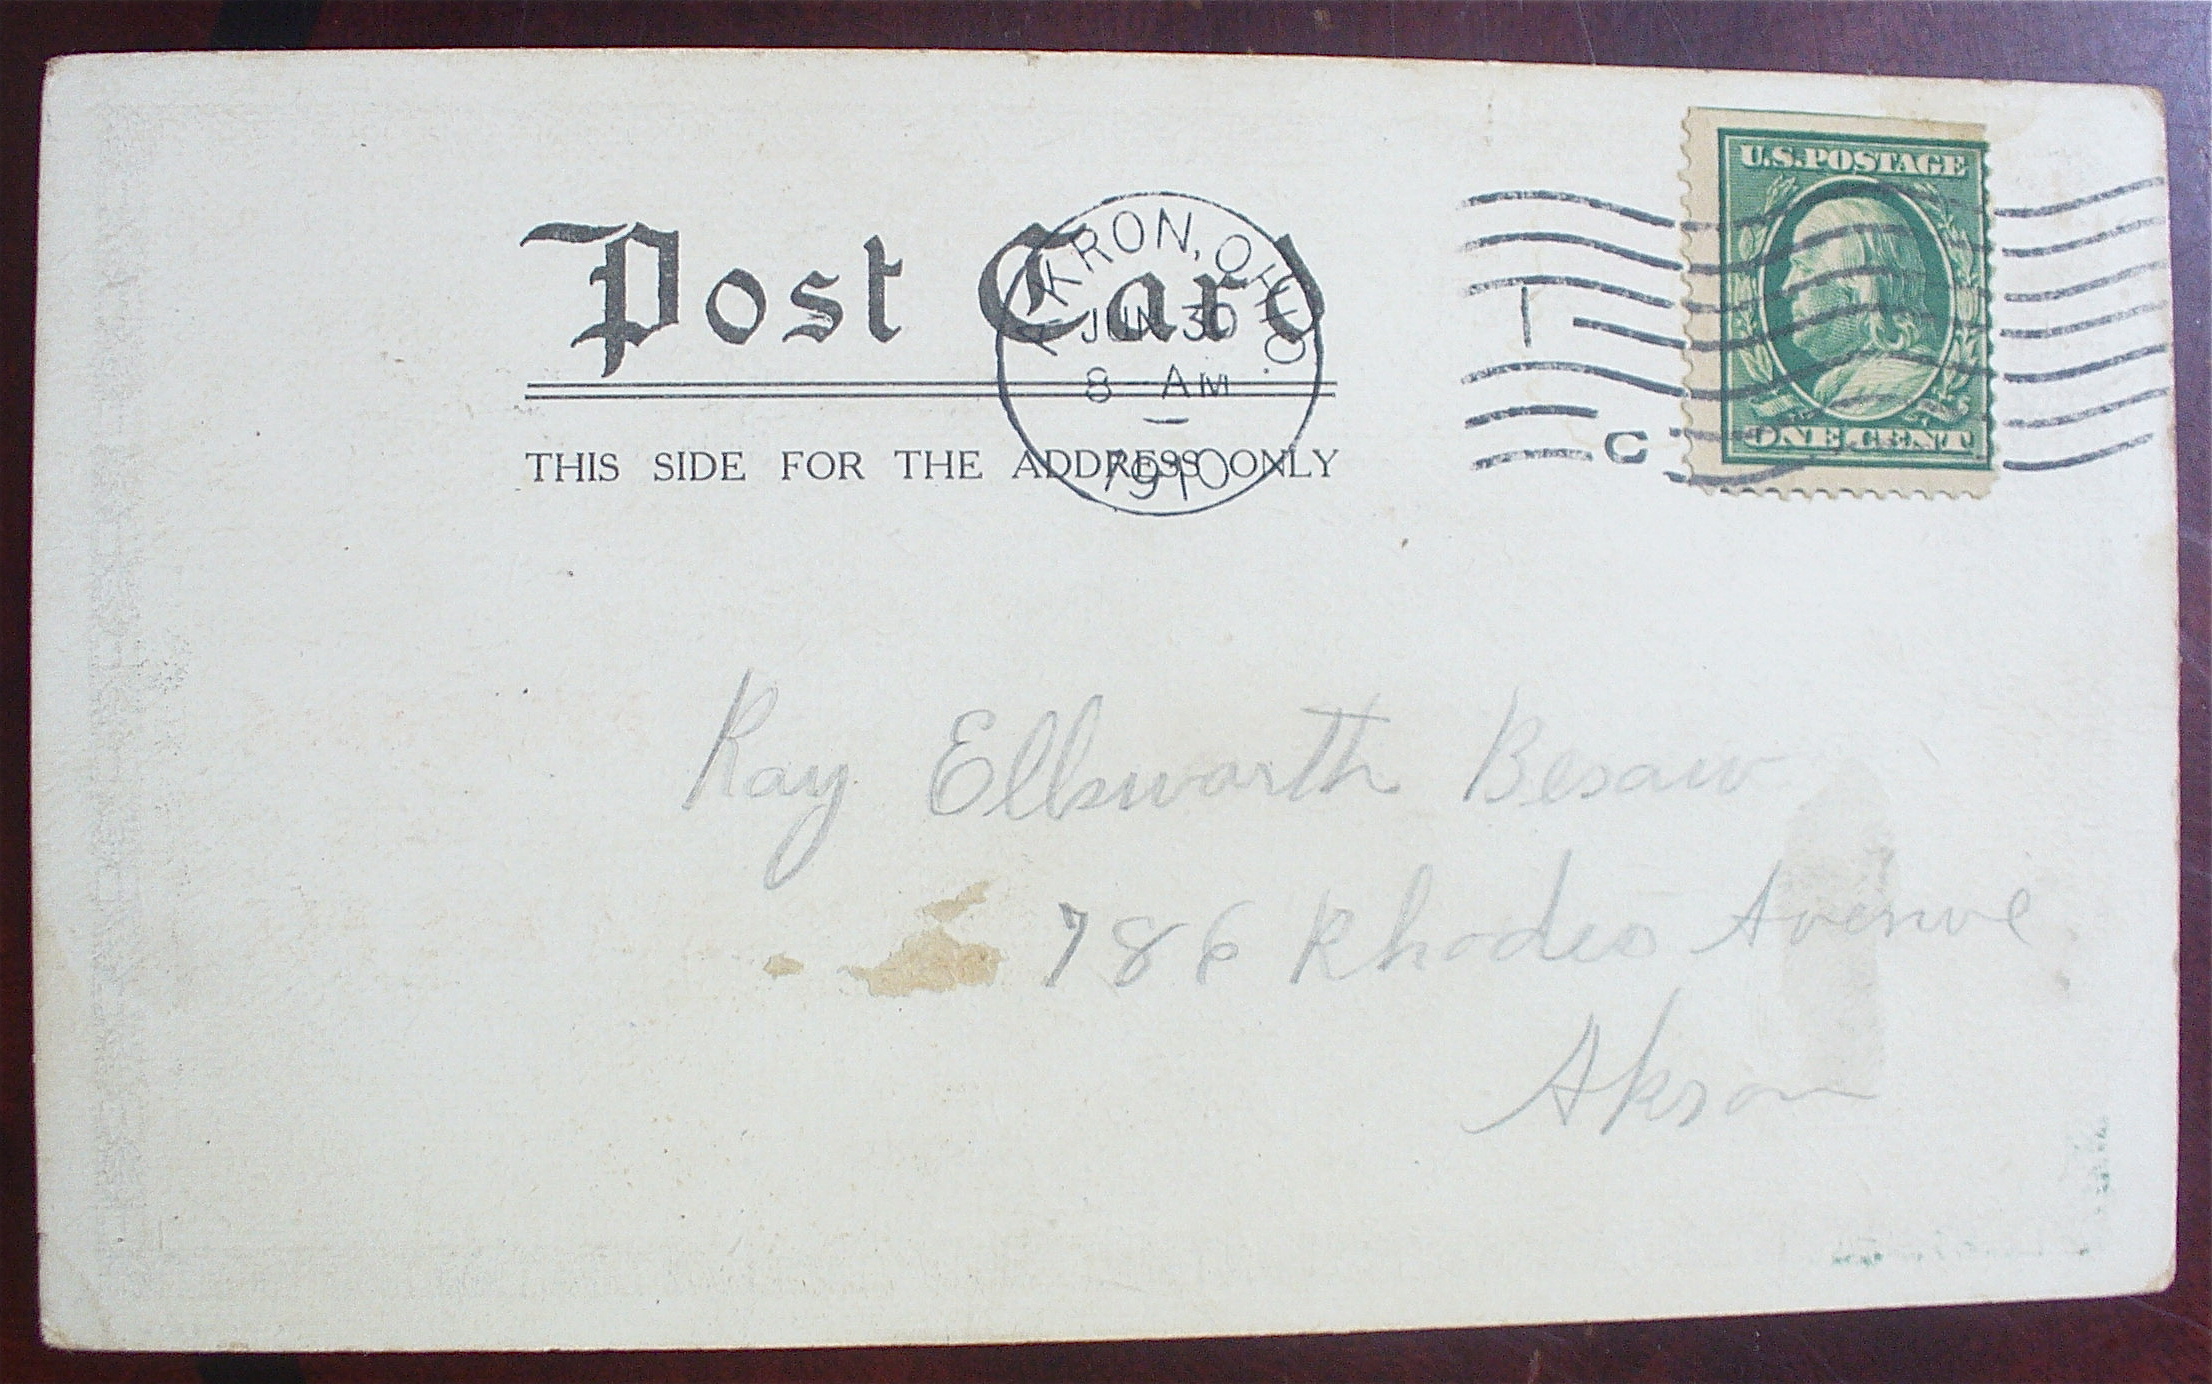 U.S. POSTAGE
Post Card
AKRON, OHIO.
JUN 30
8 AM
1910
1
C
ONE CENT
THIS SIDE FOR THE ADDRESS ONLY
Ray Ellsworth Besaw
786 Rhodes Avenue
Akron